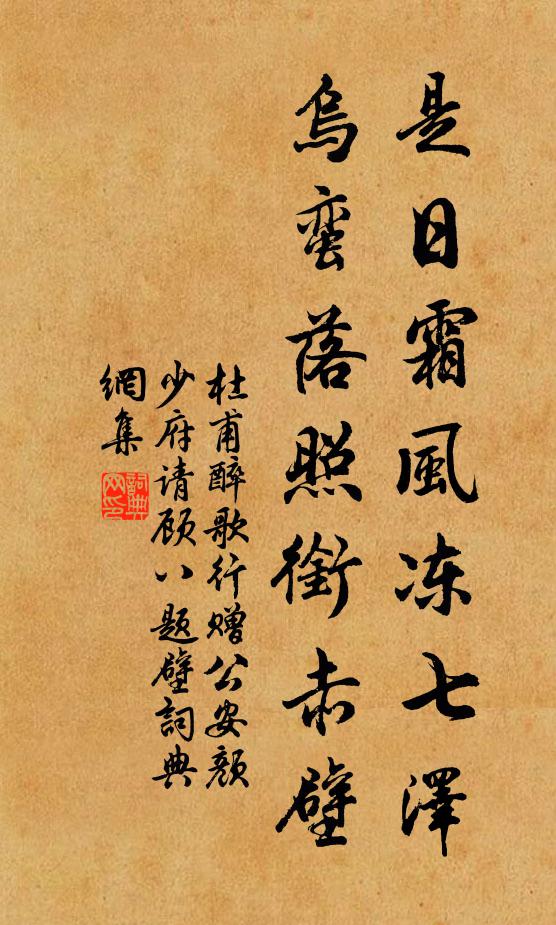 是日霜風冻七澤
烏蛮落照銜赤壁
杜甫醉歌行赠公安颜
少府请顾八题壁詞典
網集
詞典
网印